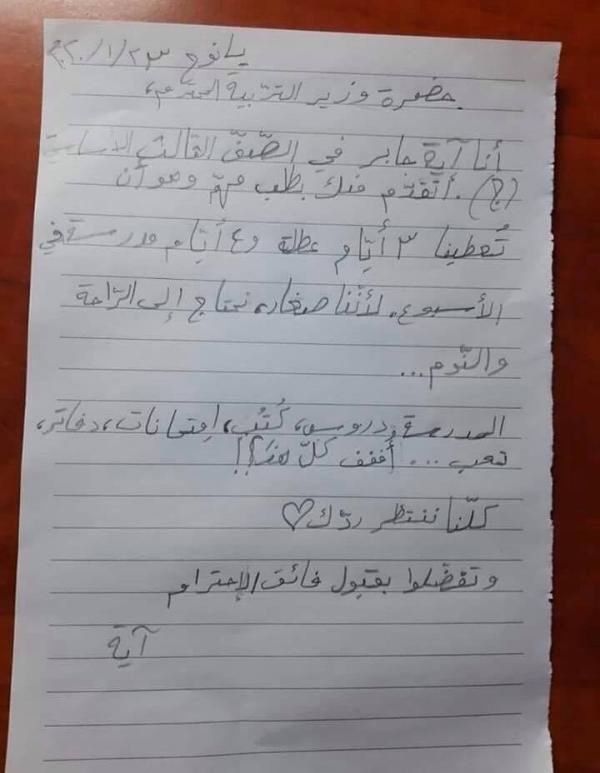 يانوح ٢٠٢٠/١/٢٣
حضرة وزير التربية المحترم،
أنا آية جابر في الصّفّ الثالث الأساسي
(ج). أتقدّم منك بطلب مهمّ وهو أن
تُعطينا ٣ أيّام عطلة و٤ أيّام مدرسة في
الأسبوع. لأنّنا صغار، نحتاج إلى الرّاحة
والنّوم...
المدرسة، دروس، كُتُب، امتحانات، دفاتر،
تعب... أففف كلّ هذا؟!!
كلّنا ننتظر ردّك♡
وتفضّلوا بقبول فائق الإحترام
آية